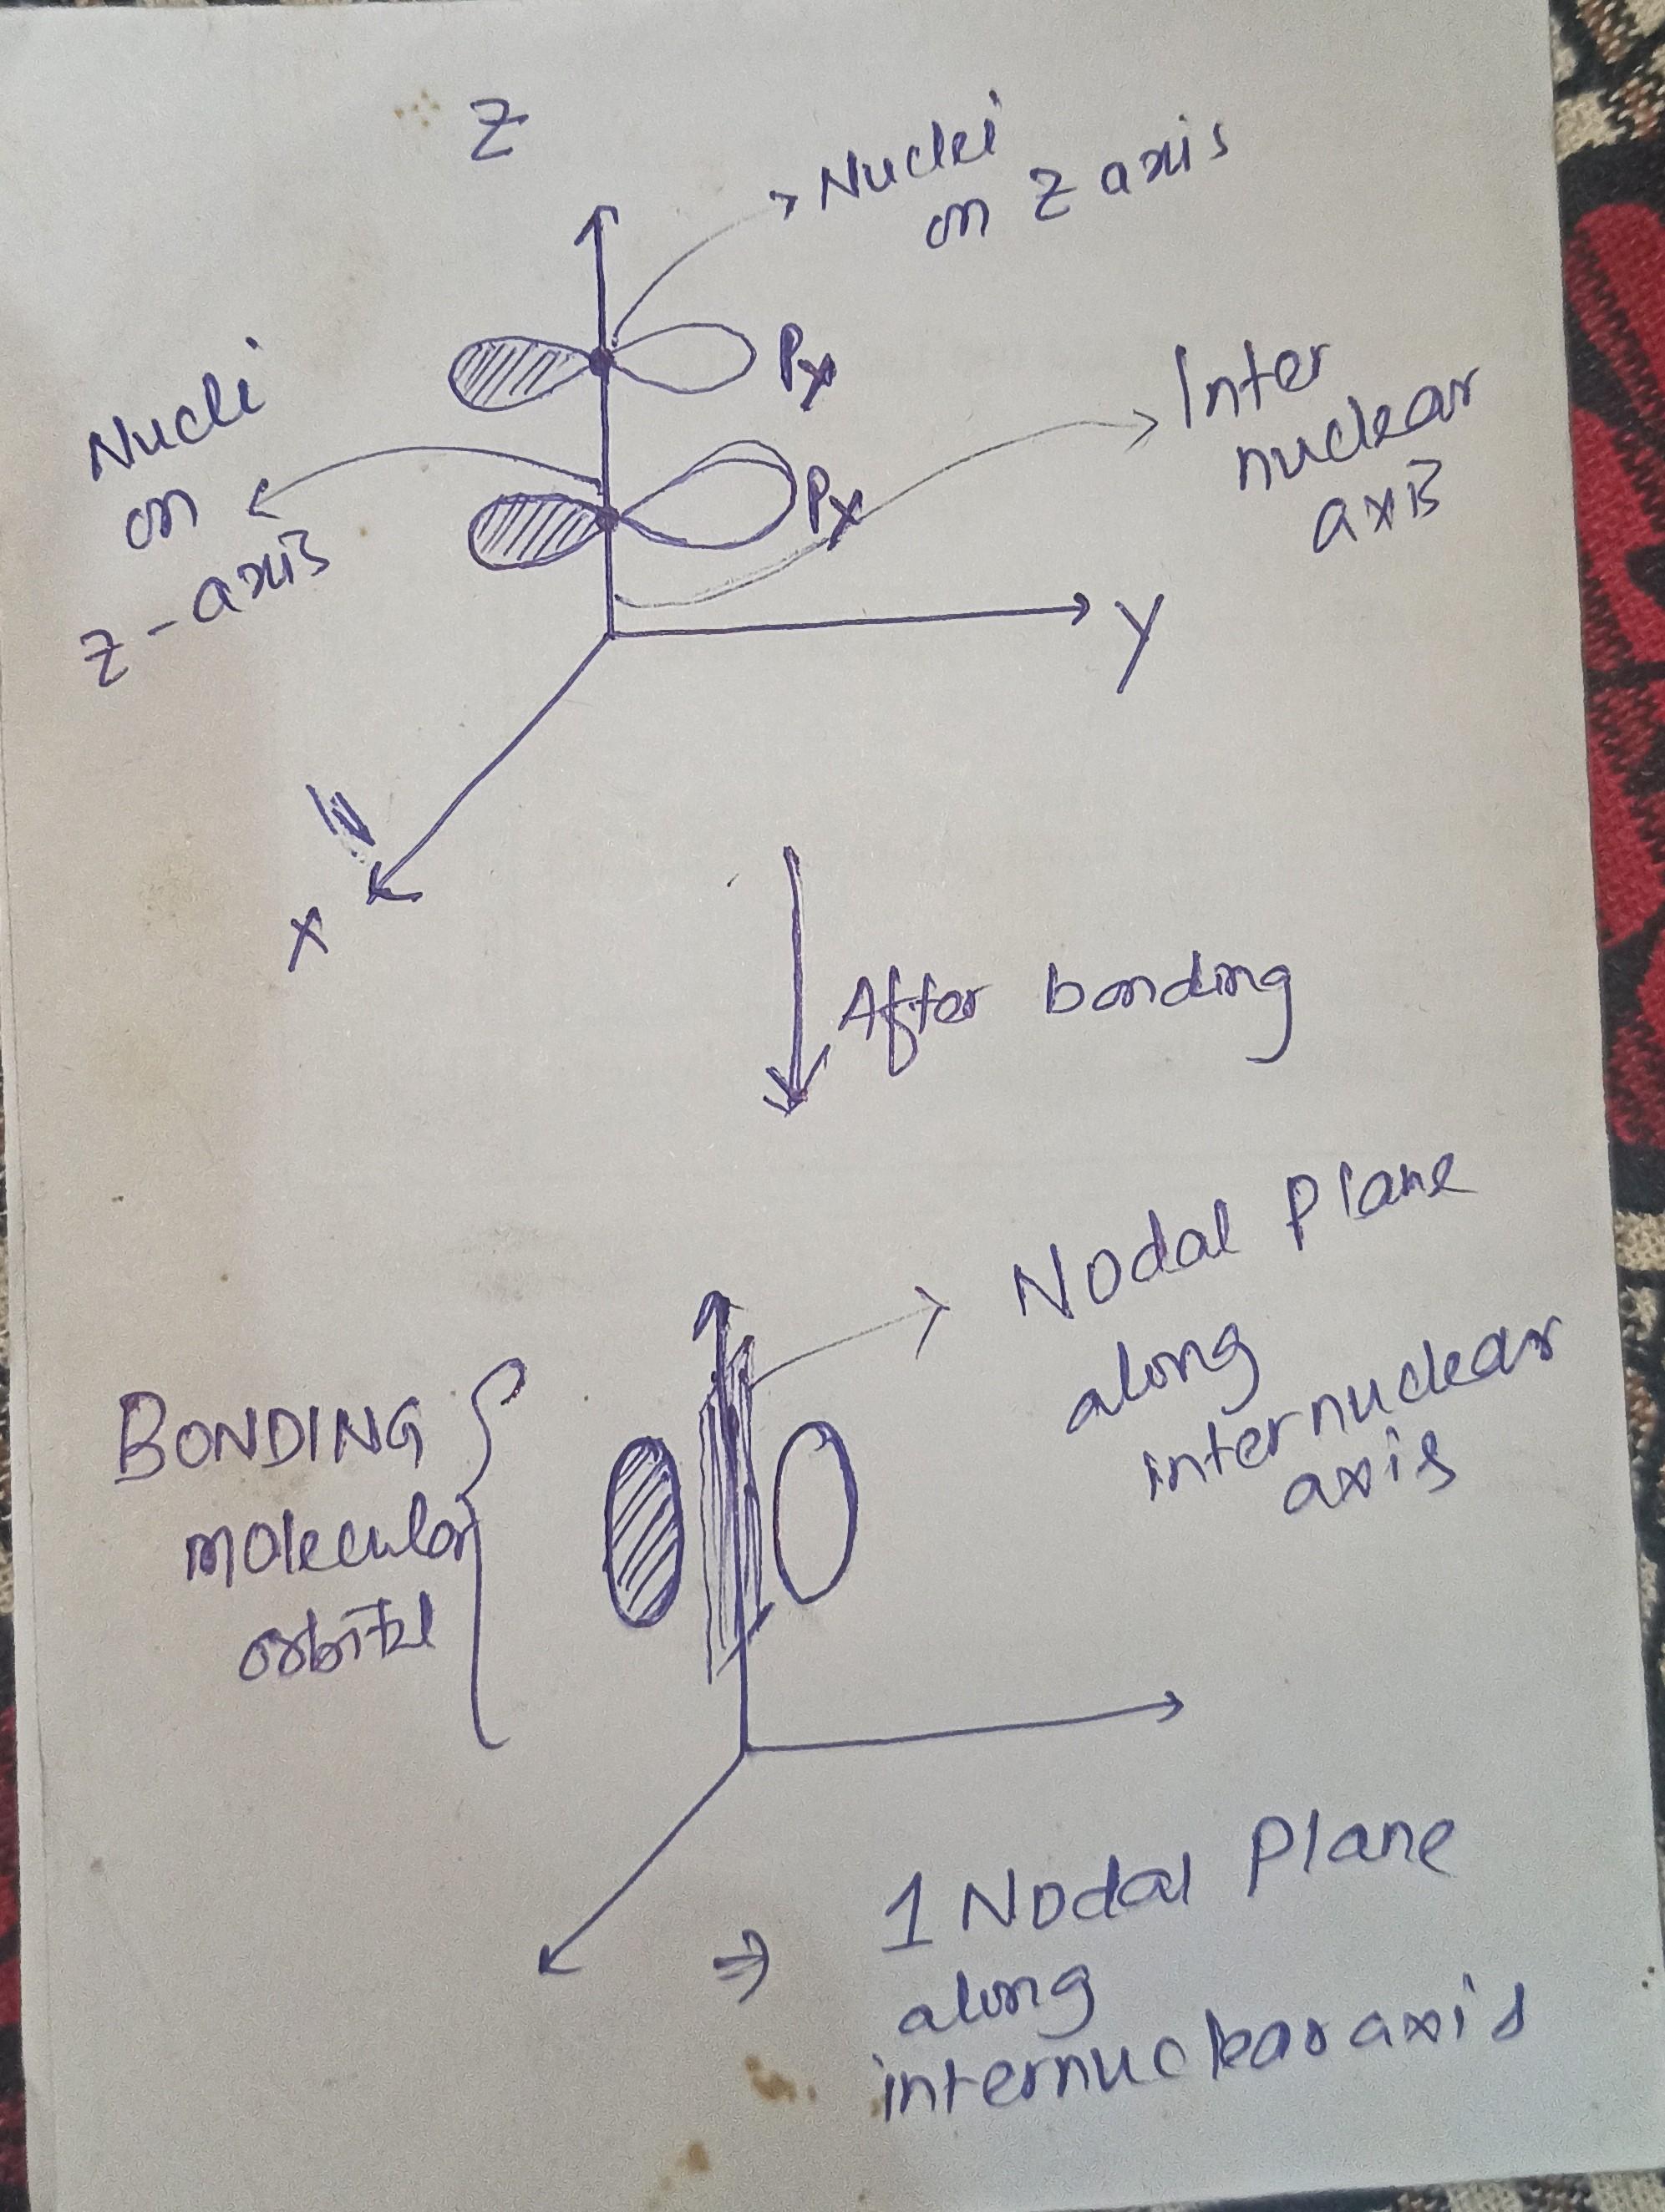 Z
Nuclei
on Z axis
Px
Inter
nuclear
axis
Nucli
on
z-axis
Px
Y
X
After bonding
Nodal Plane
along
internuclear
axis
BONDING
molecular
orbital
⇒ 1 Nodal Plane
along
internuclear axis